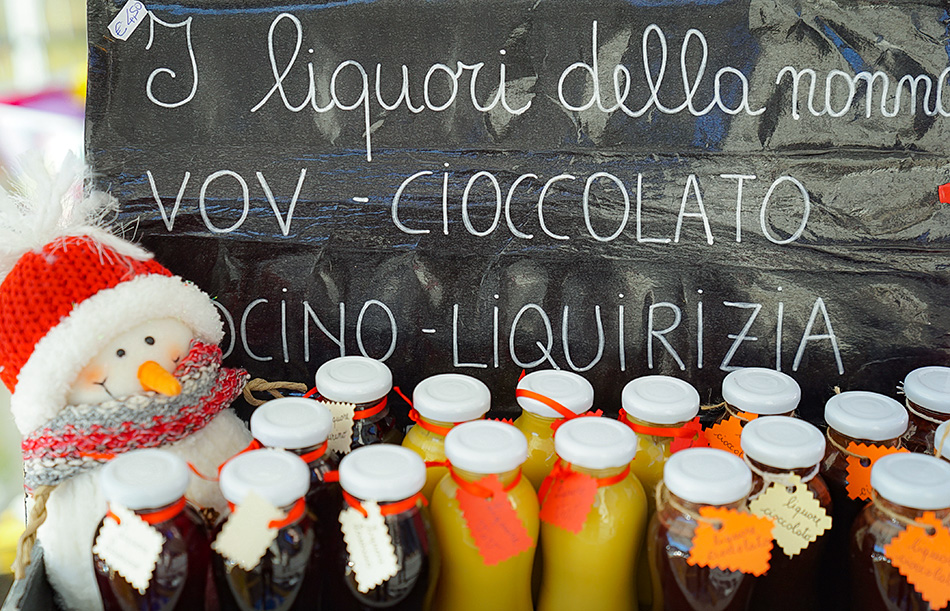 € 4,50
I liquori della nonna
VOV - CIOCCOLATO
OCINO - LIQUIRIZIA
liquore
cioccolato
liquore
cioccolato
liquore